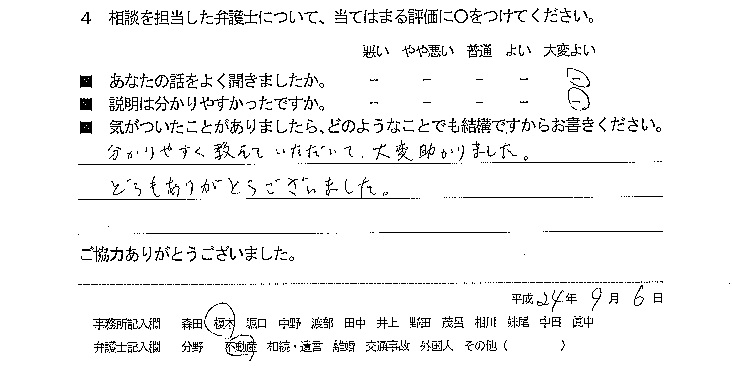 4 相談を担当した弁護士について、当てはまる評価に○をつけてください。
悪い やや悪い 普通 よい 大変よい
■ あなたの話をよく聞きましたか。 － － － － －
■ 説明は分かりやすかったですか。 － － － － －
■ 気がついたことがありましたら、どのようなことでも結構ですからお書きください。
分かりやすく教えていただいて、大変助かりました。
どうもありがとうございました。
ご協力ありがとうございました。
平成 24年 9月 6日
事務所記入欄 森田 榎木 堀口 中野 渡部 田中 井上 野田 茂呂 相川 妹尾 中田 眞中
弁護士記入欄 分野 不動産 相続・遺言 離婚 交通事故 外国人 その他（ ）